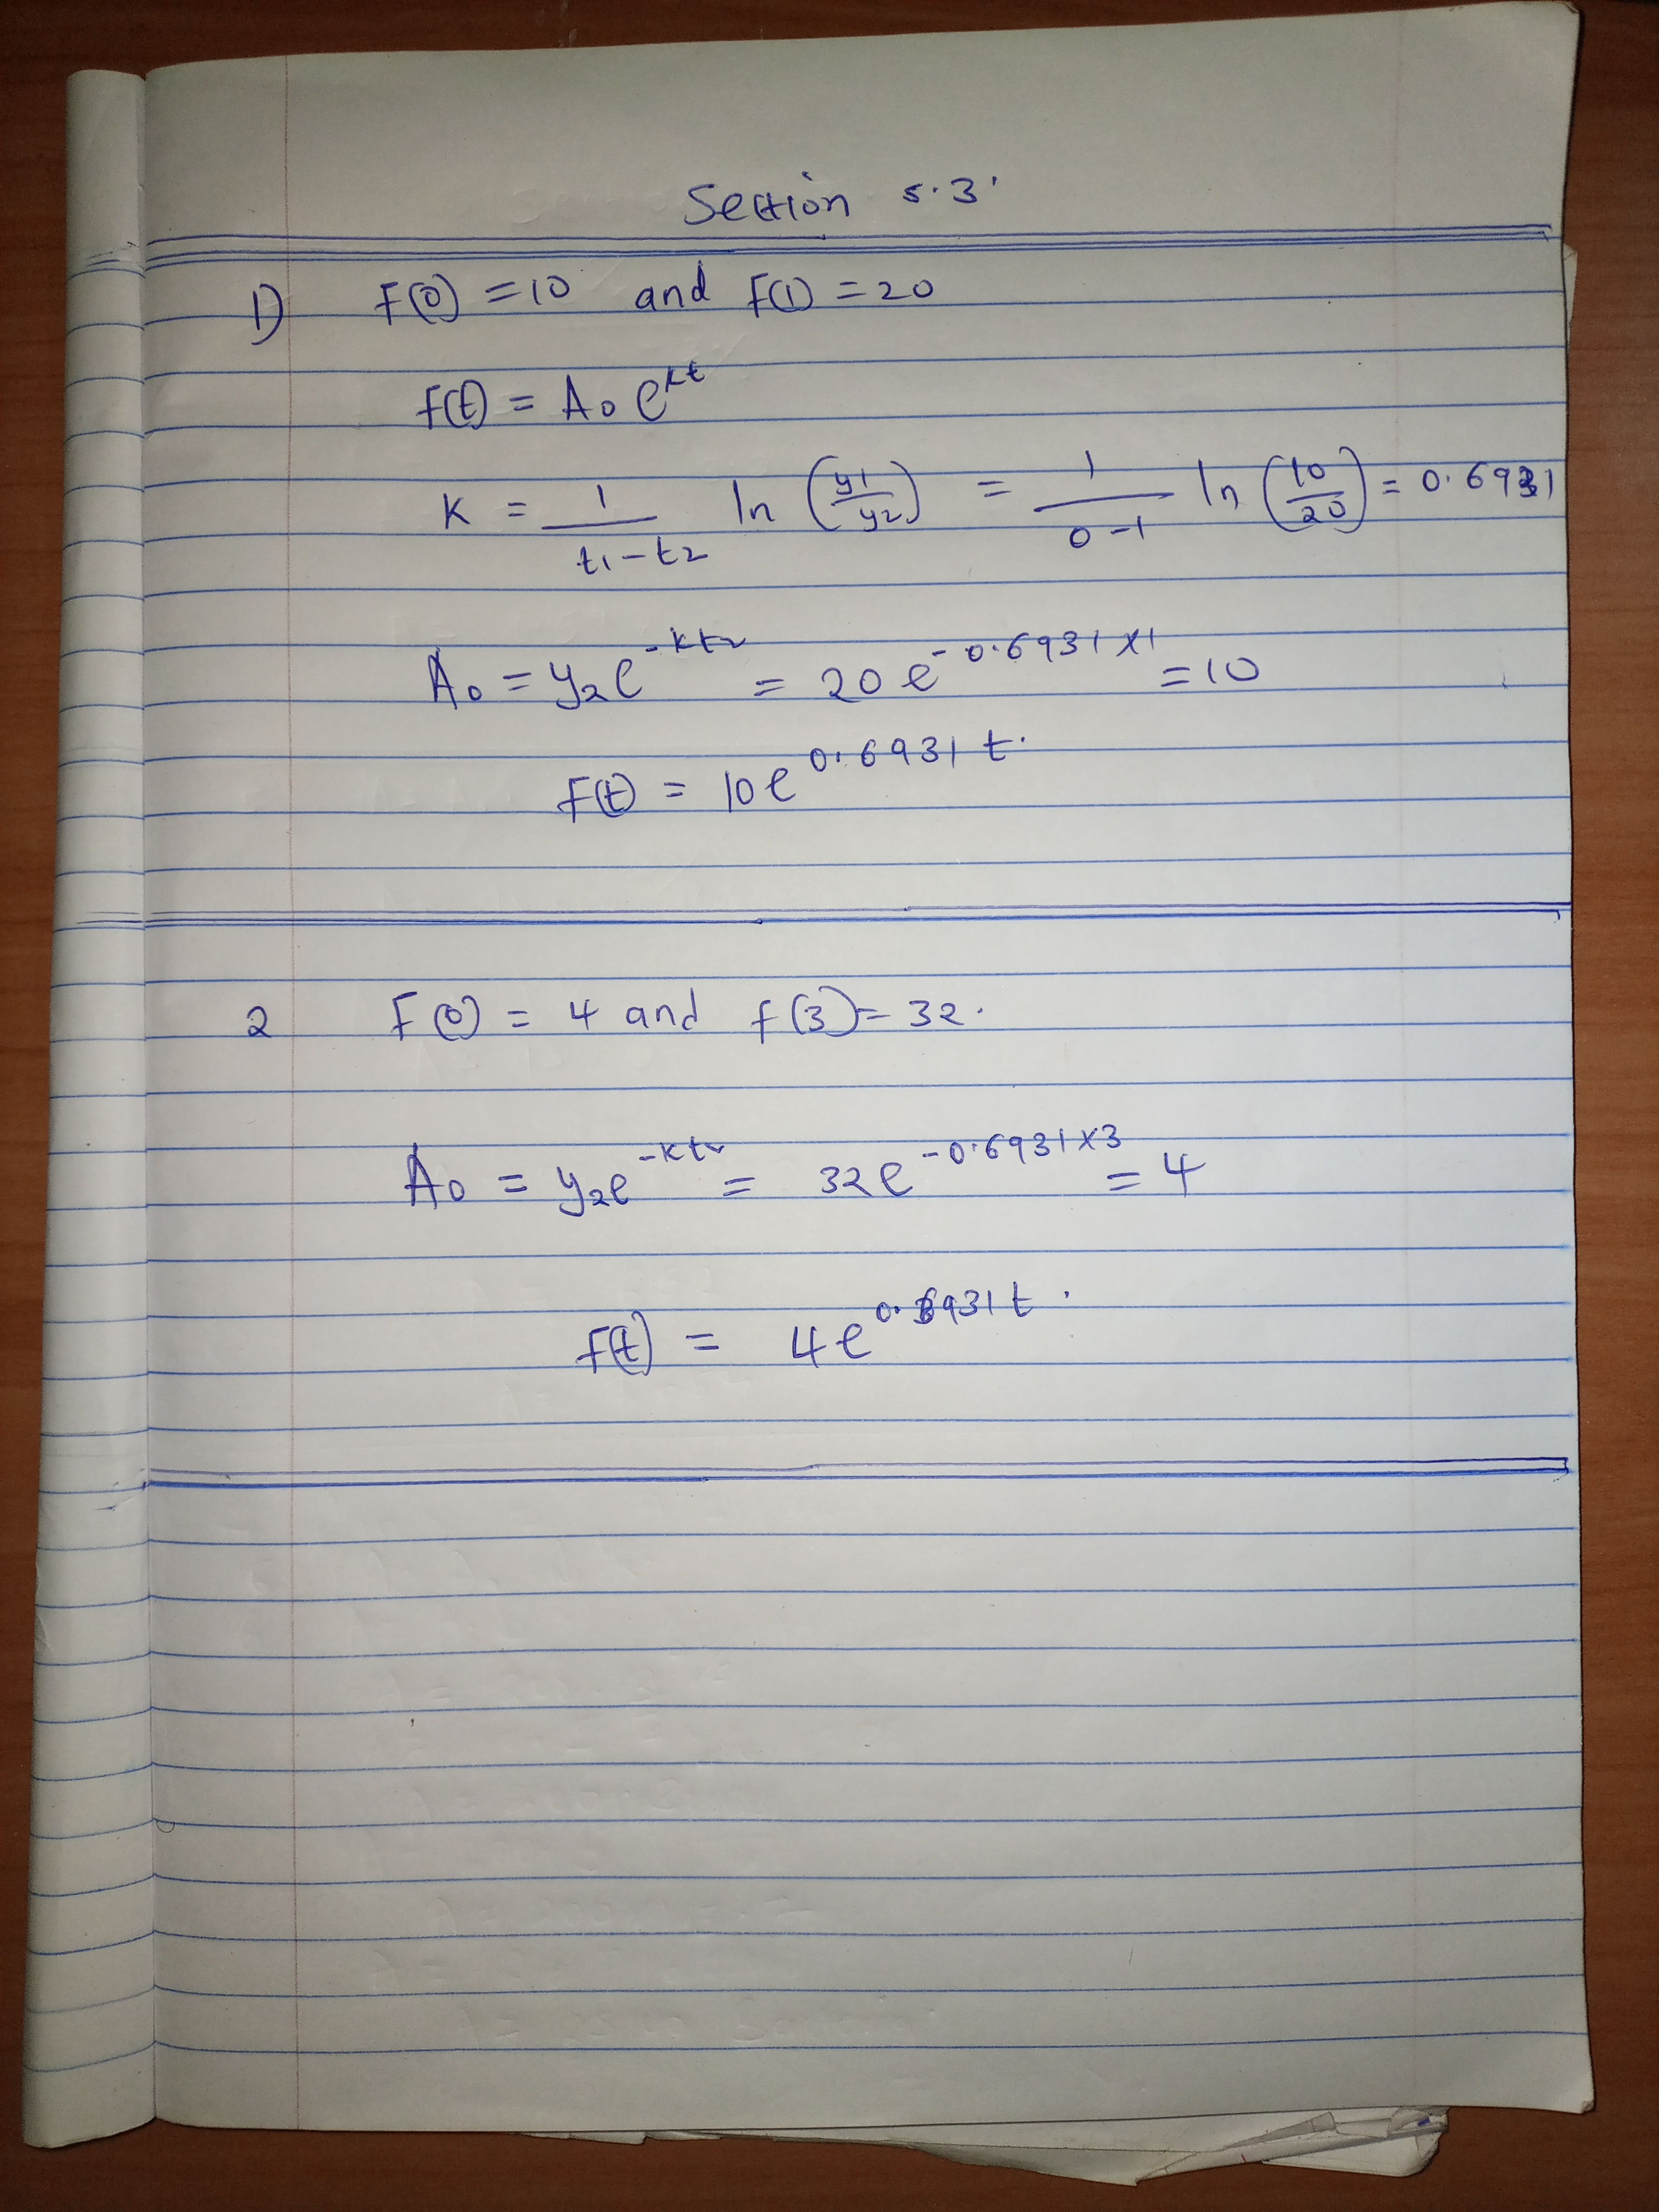 Section 5.3.
1) F(0) = 10 and F(1) = 20
f(t) = A₀ e^kt
K = 1/(t₁ - t₂) ln (y1/y2) = 1/(0 - 1) ln (10/20) = 0.6931
A₀ = y₂e^-kt₂ = 20 e^-0.6931 x 1 = 10
F(t) = 10e^0.6931 t.
2 F(0) = 4 and f(3) = 32.
A₀ = y₂e^-kt₂ = 32e^-0.6931 x 3 = 4
f(t) = 4e^0.6931 t.